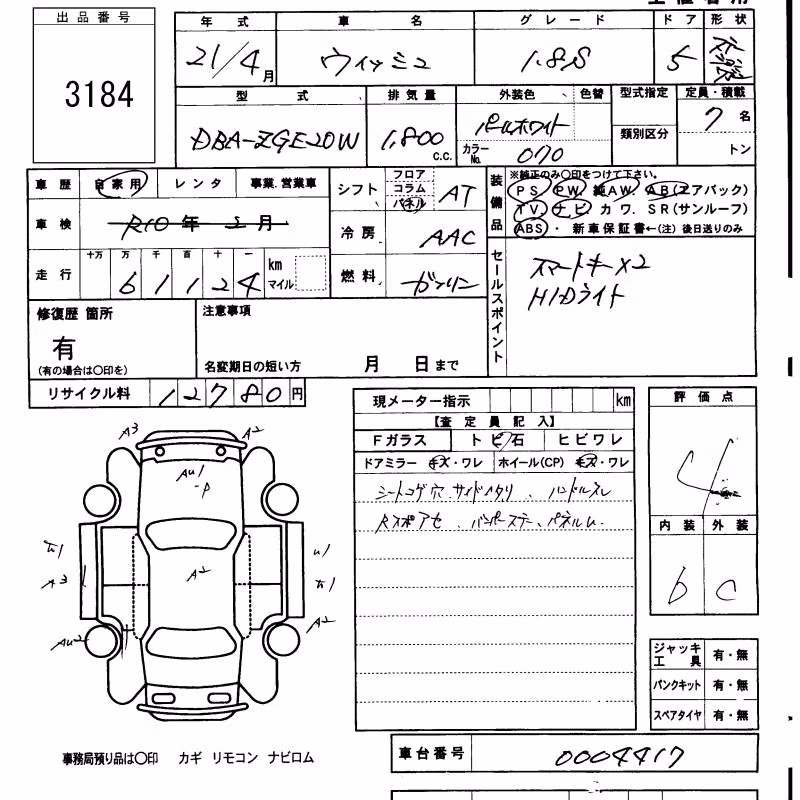 出品番号
3184
年式
21/4月
車名
ウィッシュ
グレード
1.8S
ドア
5
形状
型式
DBA-ZGE20W
排気量
1,800
c.c.
外装色
色替
パールホワイト
カラーNo.
070
型式指定
類別区分
定員・積載
7名
トン
車歴
自家用
レンタ
事業.営業車
車検
R10年2月
走行
十万 万 千 百 十 一
6 1 1 2 4
km
マイル
シフト
フロア
コラム
パネル
AT
冷房
AAC
燃料
ガソリン
装備品
※純正のみ〇印をつけて下さい。
PS PW 純AW. AB(エアバック)
TV. ナビ カワ. SR(サンルーフ)
ABS・ 新車保証書←(注)後日送りのみ
セールスポイント
スマートキーX2
HIDライト
修復歴 箇所
有
(有の場合は〇印を)
注意事項
名変期日の短い方 月 日まで
リサイクル料
12780円
現メーター指示
km
【査定員記入】
Fガラス
トビ石
ヒビワレ
ドアミラー キズ・ワレ
ホイール(CP) キズ・ワレ
シートコゲ穴 サイドスリ、ハンドルスレ
評価点
4
内装 外装
b C
A3 A2
AU1
-P
A2
A3
U1
AU2
A2
ジャッキ工具 有・無
パンクキット 有・無
スペアタイヤ 有・無
事務局預り品は〇印 カギ リモコン ナビロム
車台番号
0004417